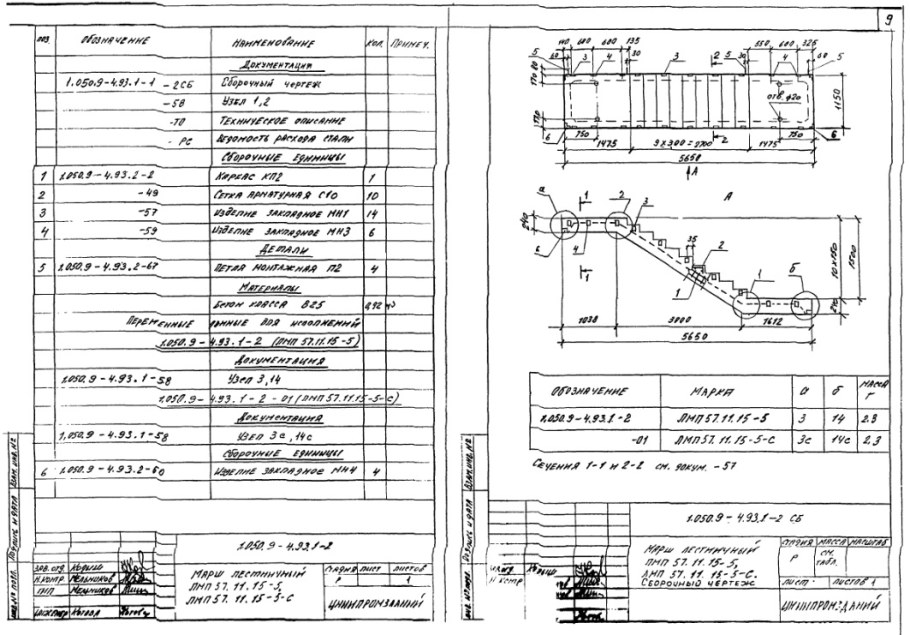 9
ПОЗ. ОБОЗНАЧЕНИЕ НАИМЕНОВАНИЕ КОЛ. ПРИМЕЧ.
ДОКУМЕНТАЦИЯ
1.050.9-4.93.1-1 -2СБ СБОРОЧНЫЙ ЧЕРТЕЖ
-58 УЗЕЛ 1,2
-ТО ТЕХНИЧЕСКОЕ ОПИСАНИЕ
- РС ВЕДОМОСТЬ РАСХОДА СТАЛИ
СБОРОЧНЫЕ ЕДИНИЦЫ
1 1.050.9-4.93.2-2 КАРКАС КП2 1
2 -49 СЕТКА АРМАТУРНАЯ С10 10
3 -57 ИЗДЕЛИЕ ЗАКЛАДНОЕ МН1 14
4 -59 ИЗДЕЛИЕ ЗАКЛАДНОЕ МН3 6
ДЕТАЛИ
5 1.050.9-4.93.2-67 ПЕТЛЯ МОНТАЖНАЯ П2 4
МАТЕРИАЛЫ
БЕТОН КЛАССА В25 0,92 м3
ПЕРЕМЕННЫЕ ДАННЫЕ ДЛЯ ИСПОЛНЕНИЙ
1.050.9-4.93.1-2 (ЛМП 57.11.15-5)
ДОКУМЕНТАЦИЯ
1.050.9-4.93.1-58 УЗЕЛ 3,14
1.050.9-4.93.1-2-01 (ЛМП 57.11.15-5-С)
ДОКУМЕНТАЦИЯ
1.050.9-4.93.1-58 УЗЕЛ 3с, 14с
СБОРОЧНЫЕ ЕДИНИЦЫ
6 1.050.9-4.93.2-60 ИЗДЕЛИЕ ЗАКЛАДНОЕ МН4 4
1.050.9-4.93.1-2
МАРШ ЛЕСТНИЧНЫЙ
ЛМП 57.11.15-5,
ЛМП 57.11.15-5-С
СТАДИЯ ЛИСТ ЛИСТОВ
Р 1
ЦНИИПРОМЗДАНИЙ
ЗАВ. ОТД.
Н.КОНТР. МЕЛЬНИКОВ
ГИП МЕЛЬНИКОВ
ИНЖЕНЕР
ПОДПИСЬ И ДАТА
ВЗАМ. ИНВ. №
140 600 600 135 550 600 325
5 3 4 30 3 2 5 4 60 5
170 80
ОТВ. Ф20
1150
6 750 2 750 6
1475 9×300=2700 1475
5650
А
А
а 1 2 3 35 2 1 б
240
6 4 1 1
10×150 1500
210
1038 3000 1612
5650
ОБОЗНАЧЕНИЕ МАРКА а б МАССА Т
1.050.9-4.93.1-2 ЛМП 57.11.15-5 3 14 2.3
-01 ЛМП 57.11.15-5-С 3с 14с 2,3
СЕЧЕНИЯ 1-1 И 2-2 СМ. ДОКУМ. -57
1.050.9-4.93.1-2 СБ
МАРШ ЛЕСТНИЧНЫЙ
ЛМП 57.11.15-5,
ЛМП 57.11.15-5-С.
СБОРОЧНЫЙ ЧЕРТЕЖ
СТАДИЯ МАССА МАСШТАБ
Р СМ. ТАБЛ.
ЛИСТ ЛИСТОВ 1
ЦНИИПРОМЗДАНИЙ
Н КОНТР
ПОДПИСЬ И ДАТА
ВЗАМ. ИНВ. №